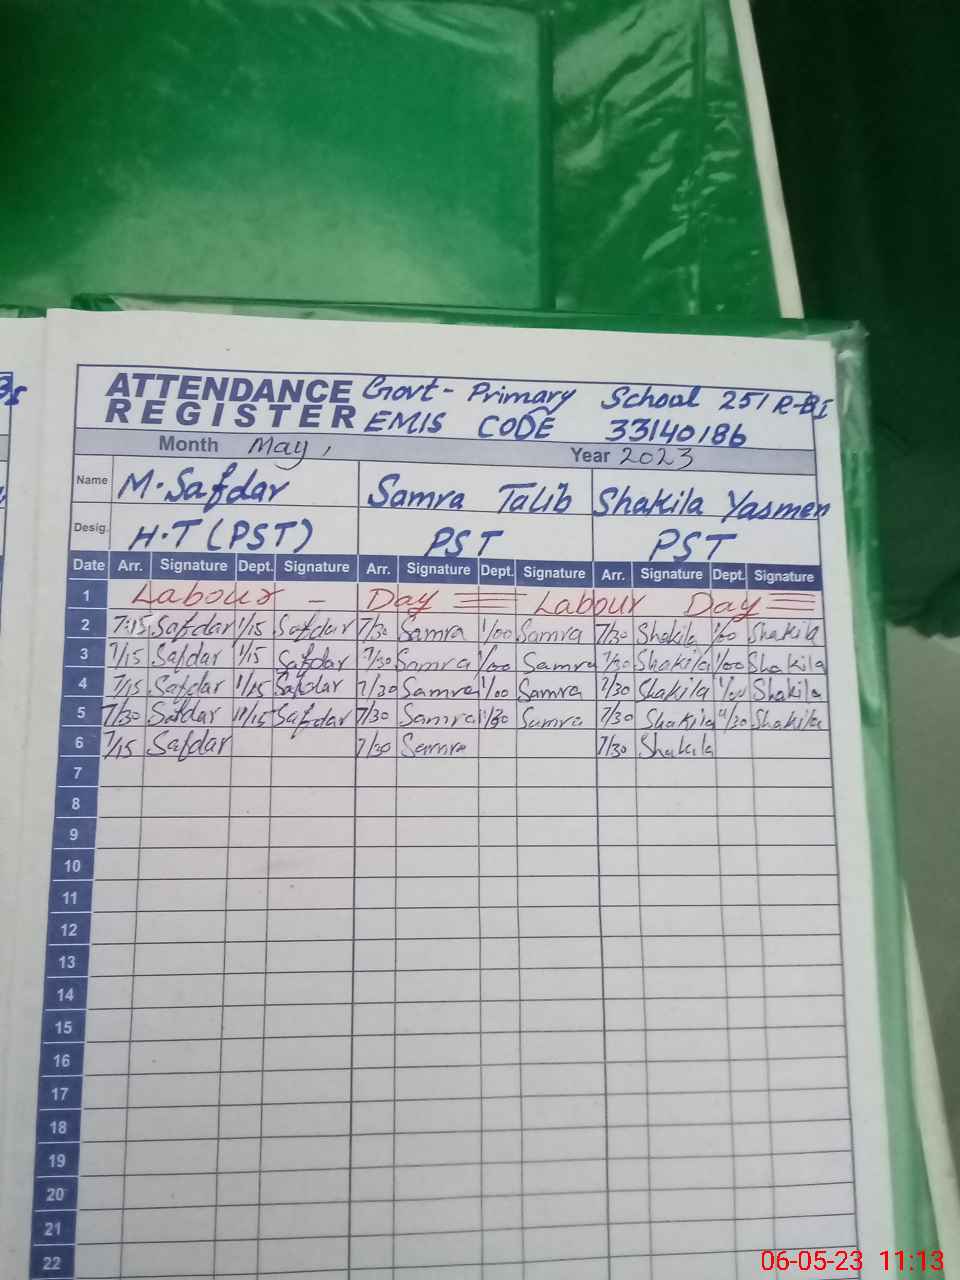 ATTENDANCE REGISTER Govt- Primary School 251 R-BI
EMIS CODE 33140186
Month May, Year 2023
Name M.Safdar Samra Talib Shakila Yasmen
Desig. H.T (PST) PST PST
Date Arr. Signature Dept. Signature Arr. Signature Dept. Signature Arr. Signature Dept. Signature
1 Labour - Day Labour Day
2 7:15 Safdar 1/15 Safdar 7/30 Samra 1/00 Samra 7/30 Shakila 1/00 Shakila
3 7/15 Safdar 1/15 Safdar 7/30 Samra 1/00 Samra 7/30 Shakila 1/00 Shakila
4 7/15 Safdar 1/15 Safdar 7/30 Samra 1/00 Samra 7/30 Shakila 1/00 Shakila
5 7/30 Safdar 11/15 Safdar 7/30 Samra Samra 7/30 Shakila Shakila
6 7/15 Safdar 7/30 Samra 7/30 Shakila
7
8
9
10
11
12
13
14
15
16
17
18
19
20
21
22
06-05-23 11:13